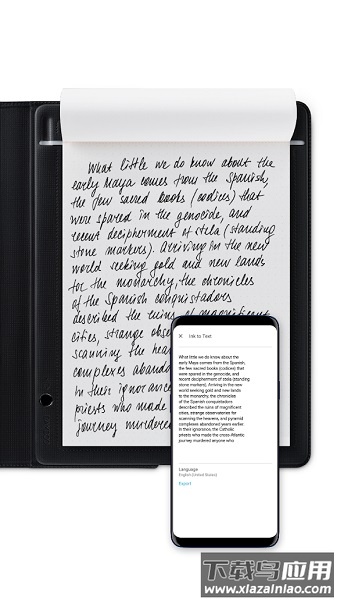 What little we do know about the
early Maya comes from the Spanish,
the few sacred books (codices) that
were spared in the genocide, and
recent decipherment of stela (standing
stone markers). Arriving in the new
world seeking gold and new lands
for the monarchy, the chronicles
of the Spanish conquistadors
described the ruins of magnificent
cities, strange obse
scanning the hea
complexes abando
in their ignoranc
priests who made
journey murdered
× Ink to Text
What little we do know about the
early Maya comes from the Spanish,
the few sacred books (codices) that
were spared in the genocide, and
recent decipherment of stela (standing
stone markers). Arriving in the new
world seeking gold and new lands
to the monarchy, the chronicles
of the Spanish conquistadors
described the ruins of magnificent
cities, strange observatories for
scanning the heavens, and pyramid
complexes abandoned years earlier.
In their ignorance, the Catholic
priests who made the cross-Atlantic
journey murdered anyone who
Language
English (United States)
Export
下载鸟应用
www.xiazainiao.com